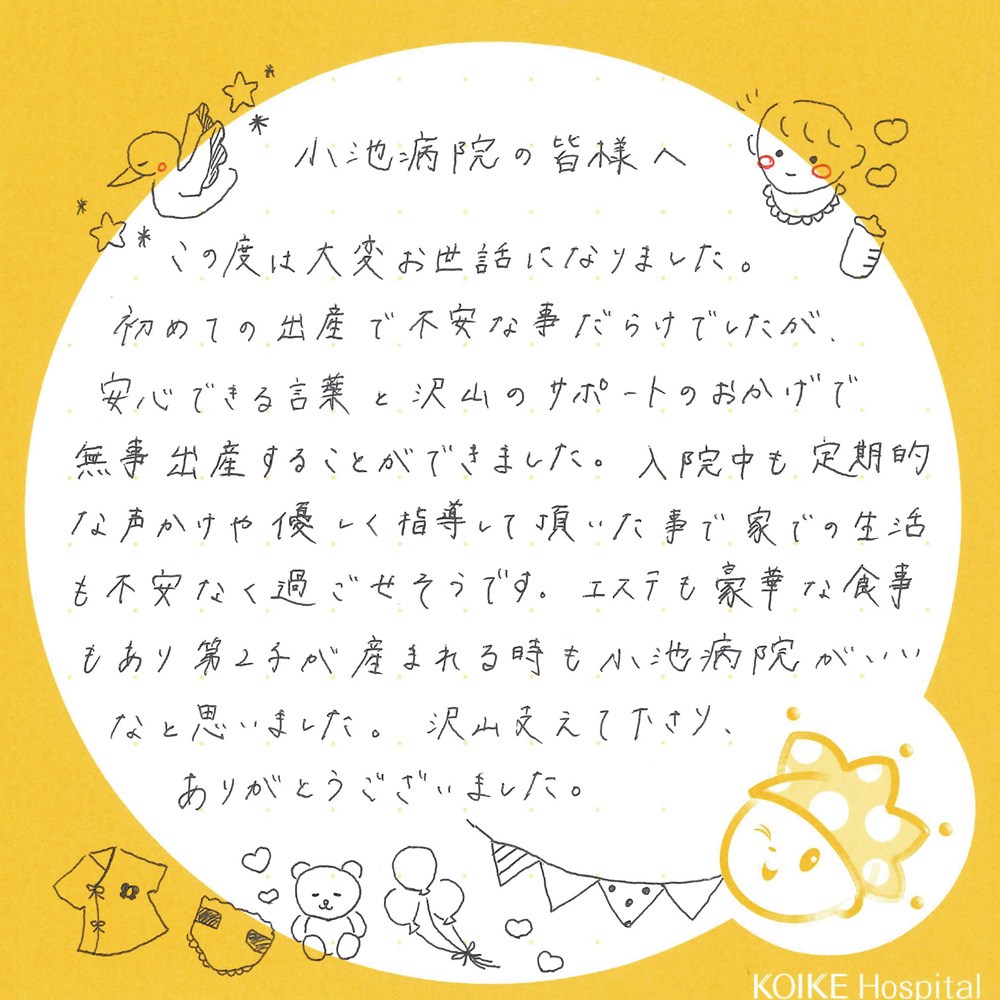 小池病院の皆様へ
この度は大変お世話になりました。
初めての出産で不安な事だらけでしたが、
安心できる言葉と沢山のサポートのおかげで
無事出産することができました。入院中も定期的
な声かけや優しく指導して頂いた事で家での生活
も不安なく過ごせそうです。エステも豪華な食事
もあり第2子が産まれる時も小池病院がいい
なと思いました。沢山支えて下さり、
ありがとうございました。
KOIKE Hospital